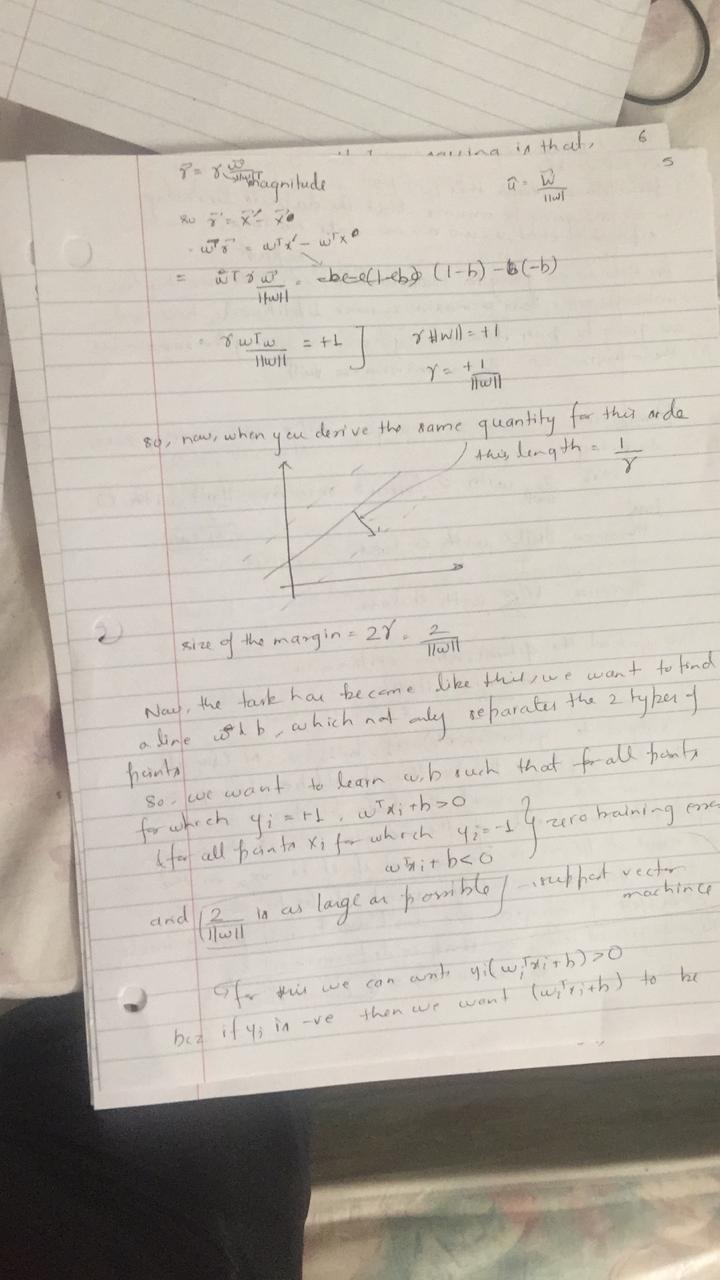 6
is that,
5
r⃗ = γ w⃗/||w|| magnitude
û = w⃗/||w||
so r⃗ = x⃗' - x⃗⁰
wᵀr⃗ = wᵀx' - wᵀx⁰
= wᵀ γ w⃗/||w|| = (1-b) - (-b)
= γ wᵀw/||w|| = +1 ] γ||w|| = +1
γ = +1/||w||
so, now, when you derive the same quantity for this side
this, length = 1/γ
2
size of the margin = 2γ = 2/||w||
Now, the task has become like this, we want to find
a line w & b, which not only separates the 2 types of
points
So, we want to learn w,b such that for all points
for which yᵢ = +1, wᵀxᵢ+b>0
& for all points xᵢ for which yᵢ=-1 } zero training error
wᵀxᵢ+b<0
and 2/||w|| is as large as possible support vector
machince
for this we can write yᵢ(wᵢᵀxᵢ+b)>0
bcz if yᵢ is -ve then we want (wᵢᵀxᵢ+b) to be